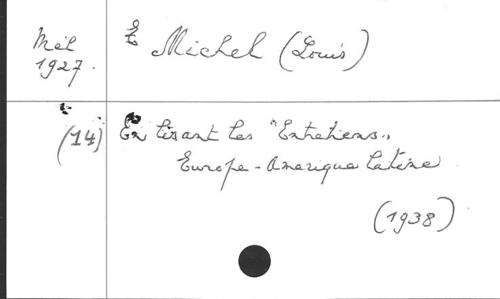 Mél
1927.
Michel (Louis)
(14)
En lisant les "Entretiens"
Europe-Amérique latine
(1938)